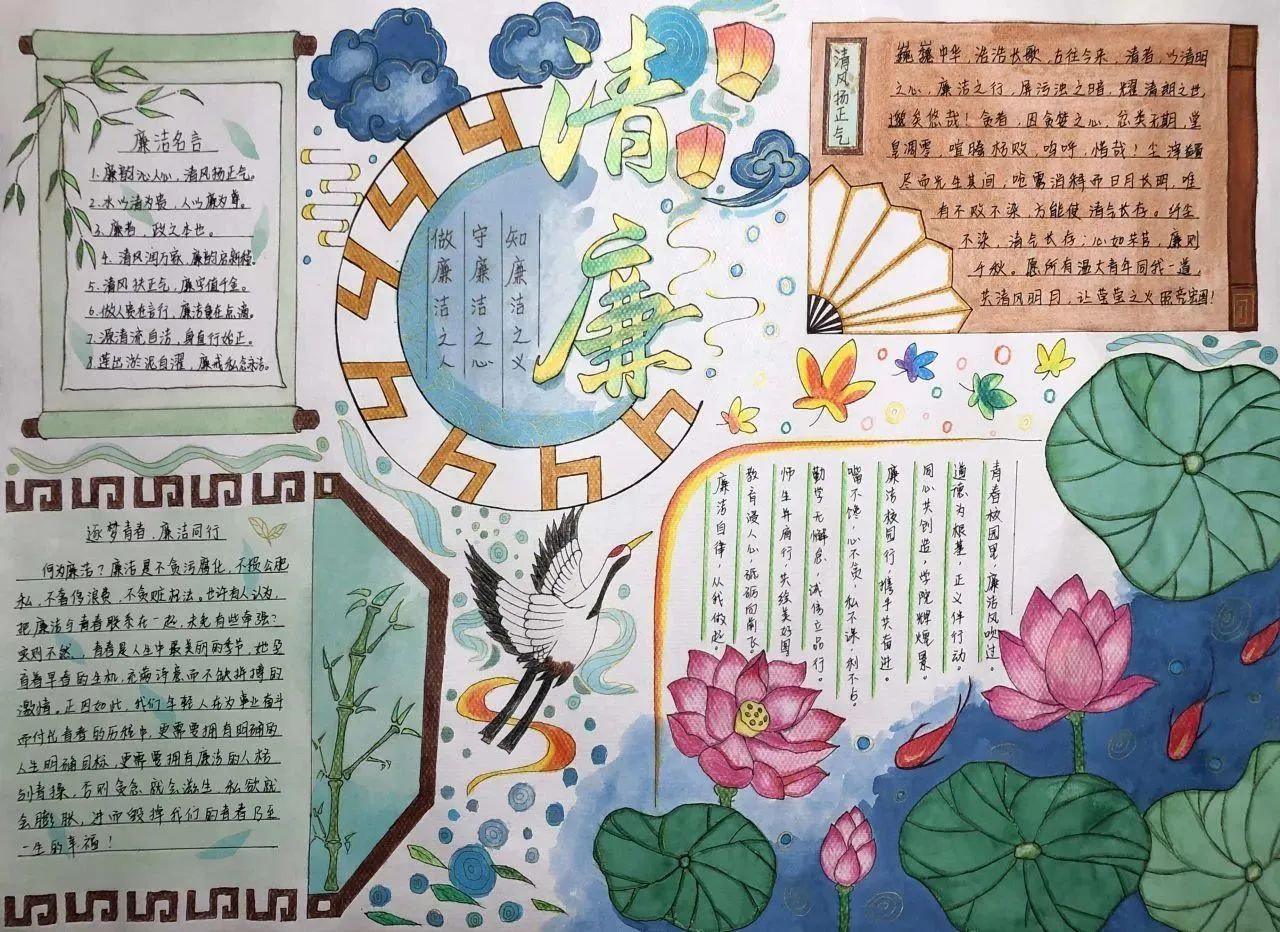 清廉
知廉洁之义
守廉洁之心
做廉洁之人
廉洁名言
1.廉韵沁人心，清风扬正气。
2.水以清为贵，人以廉为尊。
3.廉者，政之本也。
4.清风润万家，廉韵启新程。
5.清风扶正气，廉字值千金。
6.做人贵在言行，廉洁贵在点滴。
7.源清流自洁，身直行始正。
8.莲出淤泥自濯，廉戒私念永洁。
清风扬正气
巍巍中华，浩浩长歌，古往今来，清者，以清明
之心，廉洁之行，屏污浊之暗，耀清朗之世
邈矣悠哉！贪者，因贪婪之心，忿类无期，堂
皇凋零，喧腾朽败，呜呼，惜哉！尘滓
尽而光生其间，呛雾消释而日月长明，唯
有不败不染，方能使清气长存。纤尘
不染，清气长存；心如朱苔，廉则
千秋。愿所有温大青年同我一道，
共清风明月，让萤萤之火照亮宏图！
逐梦青春，廉洁同行
何为廉洁？廉洁是不贪污腐化，不损公肥
私，不奢侈浪费，不贪赃枉法。也许有人认为，
把廉洁与青春联系在一起，未免有些牵强？
实则不然，青春是人生中最美丽的季节，她孕
育着早春的生机，充满诗意而不缺拼搏的
激情。正因如此，我们年轻人在为事业奋斗
而付出青春的历程中，更需要拥有明确的
人生明确目标，更需要拥有廉洁的人格
与情操，否则贪念就会滋生，私欲就
会膨胀，进而毁掉我们的青春乃至
一生的幸福！
青春校园里，廉洁风吹过。
道德为根基，正义伴行动。
同心共创造，学院辉煌景。
廉洁校园行，携手共奋进。
嘴不馋，心不贪，私不谋，利不占。
勤学无懈怠，诚信立品行。
师生并肩行，共绘美好图
教育浸人心，砥砺向前飞。
廉洁自律，从我做起。